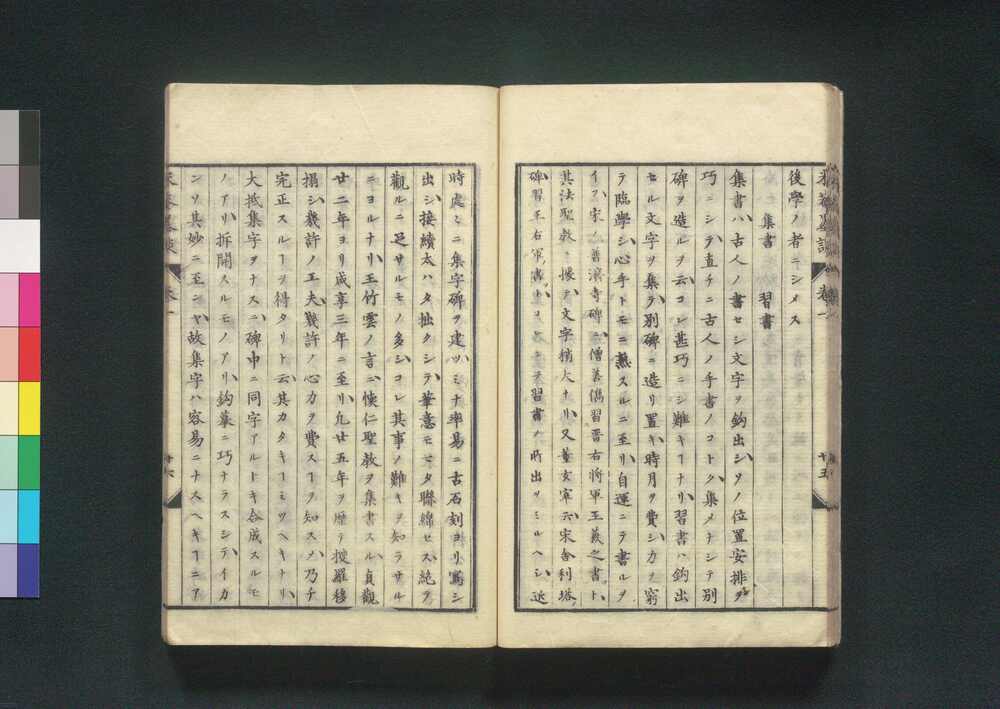 後學ノ者ニシメス
集書　習書
集書ハ古人ノ書セシ文字ヲ鈎出シソノ位置安排ヲ
巧ニシテ直チニ古人ノ手書ノコトク集メナシテ別
碑ヲ造ルヲ云コレ甚巧ニシ難キヿナリ習書ハ鈎出
セル文字ヲ集テ別碑ニ造リ置キ時月ヲ費シカヲ窮
テ臨學シ心手トモニ熟スルニ至リ自運ニテ書ルヲ
イフ宋ノ普濟寺碑ニ僧善儁習晋右將軍王羲之書ト
其法聖教ノ懐テ文字稍大ナリ又董玄宰云宋舎利塔
碑習王右軍書トヨ　習書ノ所出ヲミルヘシ近
十五
時處ミニ集字碑ヲ建ツミナ率易ニ古石刻ヨリ寫シ
出シ接續太ハタ拙クシテ筆意モセタ聯綿セス絶テ
觀ルニ足サルモノ多シコレ其事ノ難キヲ知ラサル
ニヨルナリ王竹雲ノ言ニ懐仁聖教ヲ集書スル貞觀
廿二年ヨリ咸享三年ニ至リ凢廿五年ヲ歴テ捜羅移
搨シ幾許ノ工夫幾許ノ心力ヲ費スヿヲ知スメ乃チ
完正スルヿヲ得タリト云其カタキヿミツヘキナリ
大抵集字ヲナスニ碑中ニ同字アルトキ合成スルモ
ノアリ拆開スルモノアリ鈎摹ニ巧ナラスシテイカ
ンソ其妙ニ至ンヤ故集字ハ容易ニナスヘキヿニア
十六